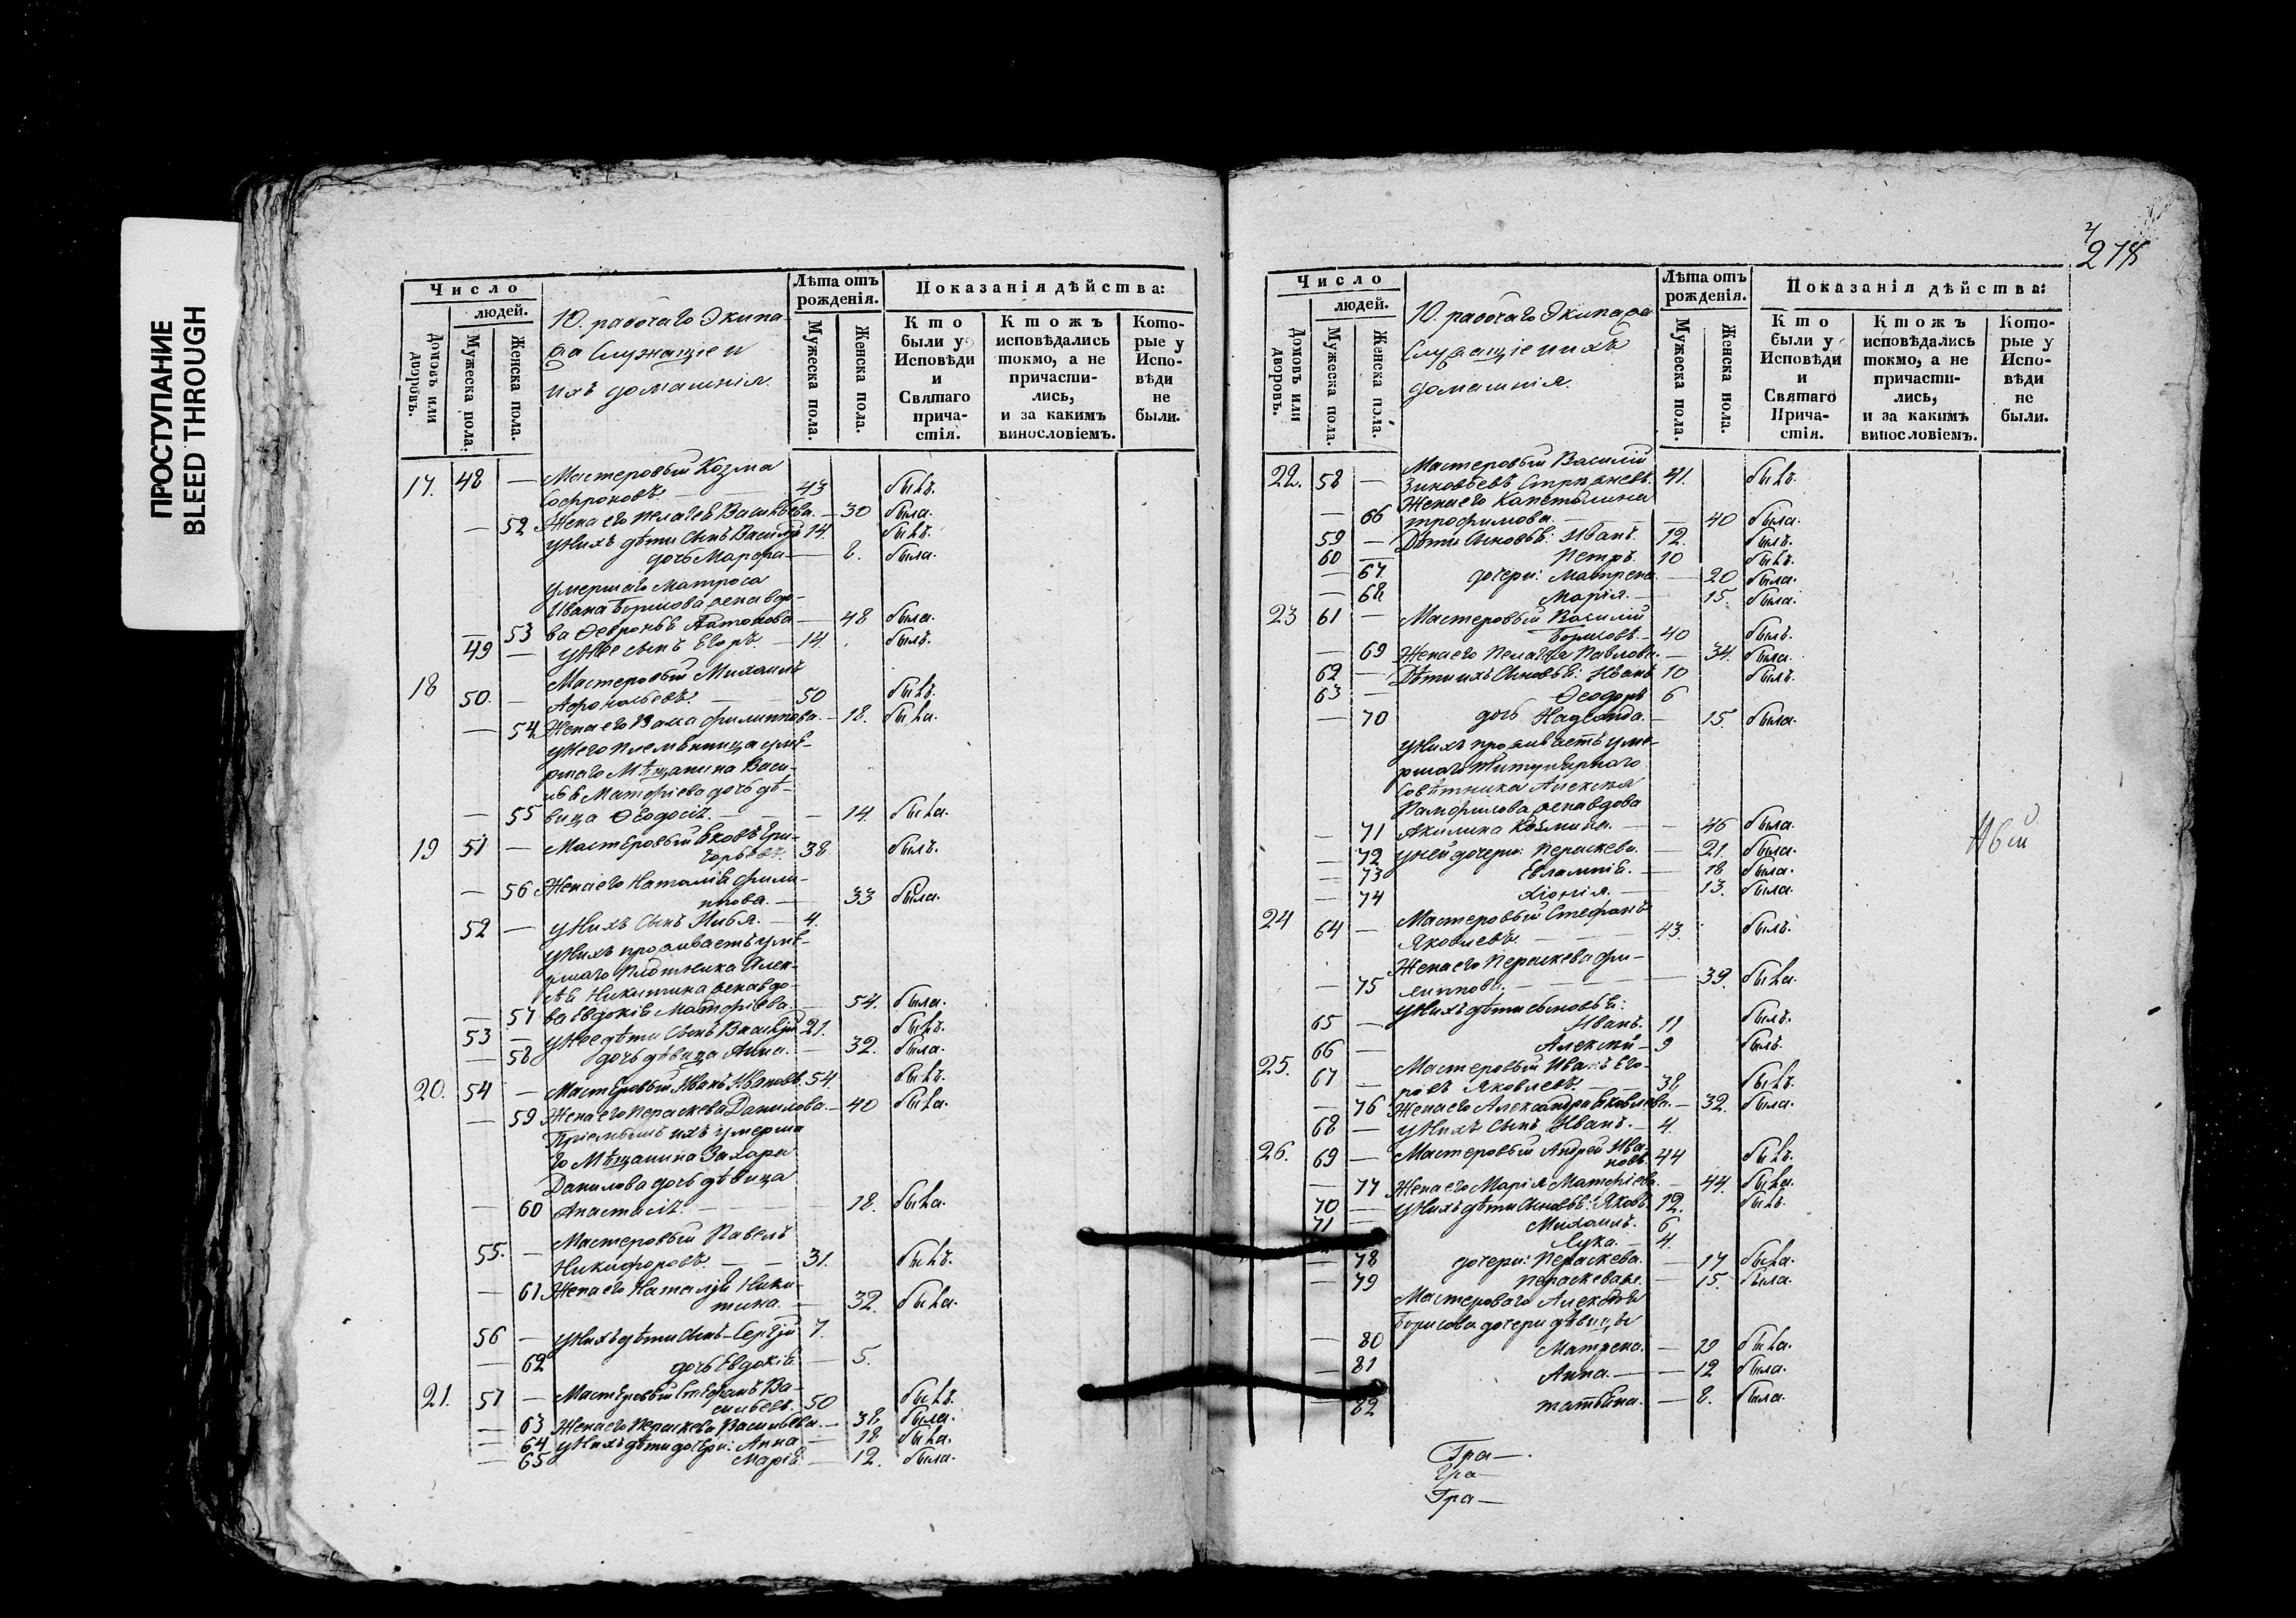 ПРОСТУПАНИЕ
BLEED THROUGH
Число
людей.
Домовъ или дворовъ.
Мужеска пола.
Женска пола.
10. рабочаго Экипа-
жа Служащіе и
ихъ домашнія.
Лѣта отъ рожденія.
Мужеска пола.
Женска пола.
Показанія дѣйства:
Кто были у Исповѣди и Святаго причастія.
Ктожъ исповѣдались токмо, а не причастились, и за какимъ винословіемъ.
Которые у Исповѣди не были.
17. 48 — Мастеровый Козма
Софроновъ. — 43 былъ.
— 52 Жена его Пелагея Васильева. — 30 была.
у нихъ дѣти сынъ Василій 14. былъ.
дочь Марфа — 8. была.
умершаго матроса
Ивана Борисова жена вдо-
— 53 ва Февронья Антонова — 48 была.
49 — у нее сынъ Егоръ. — 14. былъ.
18 Мастеровый Михаилъ
50. — Афонасьевъ. — 50 былъ.
— 54. Жена его Анна Филиппова. — 18. была.
у него племянница уме-
ршаго Мѣщанина Васи-
Матфіева дочь дѣ-
— 55 вица Ѳеодосія. — — 14. была.
19 51 — Мастеровый Яковъ Гри-
горьевъ. 38 былъ.
— 56 Жена его Наталія Фили-
ппова. — 33 была.
52 — у нихъ сынъ Илья. — 4.
у нихъ проживаетъ уме-
ршаго плотника Алек-
сѣя Никитина жена вдо-
— 57 ва Евдокія Матфіева. — 54. была.
53 — у нее дѣти сынъ Василій 21. былъ.
— 58 дочь дѣвица Анна. — 32. была.
20. 54 — Мастеровый Иванъ Ивановъ. 54. былъ.
— 59 Жена его Параскева Данилова. — 40 была.
Пріемышъ ихъ умерша
го Мѣщанина Захара
Данилова дочь дѣвица
— 60 Анастасія. — — 18. была.
Мастеровый Павелъ
55. — Никифоровъ. — — 31. былъ.
— 61 Жена его Наталія Ники-
тина. — 32. была.
56 — у нихъ дѣти сынъ — Сергѣй 7.
— 62 дочь Евдокія. — 5.
21. 57 — Мастеровый Стефанъ Ва-
сильевъ. 50 былъ.
— 63 Жена его Параскева Васильева. — 38. была.
— 64 у нихъ дѣти дочери: Анна — 18. была.
— 65 Марія. — 12. была.
278
Число
людей.
Домовъ или дворовъ.
Мужеска пола.
Женска пола.
10. рабочаго Экипажа
Служащіе и ихъ
домашнія.
Лѣта отъ рожденія.
Мужеска пола.
Женска пола.
Показанія дѣйства:
Кто были у Исповѣди и Святаго Причастія.
Ктожъ исповѣдались токмо, а не причастились, и за какимъ винословіемъ.
Которые у Исповѣди не были.
22. 58 — Мастеровый Василій
Зиновьевъ 41. былъ.
Жена его Капетолина
— 66 трофимова. — — 40 была.
59 — Дѣти сыновья: Иванъ. 12. былъ.
60 — Петръ. 10 былъ.
— 67. дочери: Матрена. — 20 была.
— 68 Марія. — 15. была.
23 61 — Мастеровый Василій
Борисовъ. — 40 былъ.
— 69 Жена его Пелагея Павлова. — 34. была.
62 — Дѣти ихъ сыновья: Иванъ 10 былъ.
63 — Ѳеодоръ 6
— 70 дочь Надежда. — 15. была.
у нихъ проживаетъ уме-
ршаго Титулярнаго
Совѣтника Алексѣя
Памфилова жена вдова
— 71 Акилина Козмина. — — 46 была.
— 72 у ней дочери: Параскева. — 21. была.
— 73 Евлампія. — 18 была.
— 74 Хіонія. — 13. была.
24 64 — Мастеровый Стефанъ
Яковлевъ. — 43. былъ.
Жена его Параскева Фи-
— 75 липпова. — — 39. была.
у нихъ дѣти сыновья:
65 — Иванъ. 11 былъ.
66 — Алексѣй — 9 былъ.
25. 67 — Мастеровый Иванъ Его-
ровъ Яковлевъ. — 38 былъ.
— 76 Жена его Александра Яковлева. — 32. была.
68 — у нихъ сынъ Иванъ. — 4.
26. 69 — Мастеровый Андрей Ива-
новъ. 44 былъ.
— 77 Жена его Марія Матфіева. — 44. была.
70 — у нихъ дѣти сыновья: Яковъ. 12. былъ.
71 — Михаилъ. 6
Лука. — 4.
— 78 дочери: Параскева. — 17 была.
— 79 Параскева. — 15. была.
Мастероваго Алексѣя
Борисова дочери дѣвицы
— 80 Матрена. — 19 была.
— 81 Анна. — — 12 была.
— 82 татьяна. — 8. была.
Гра—.
Гра—
Гра—